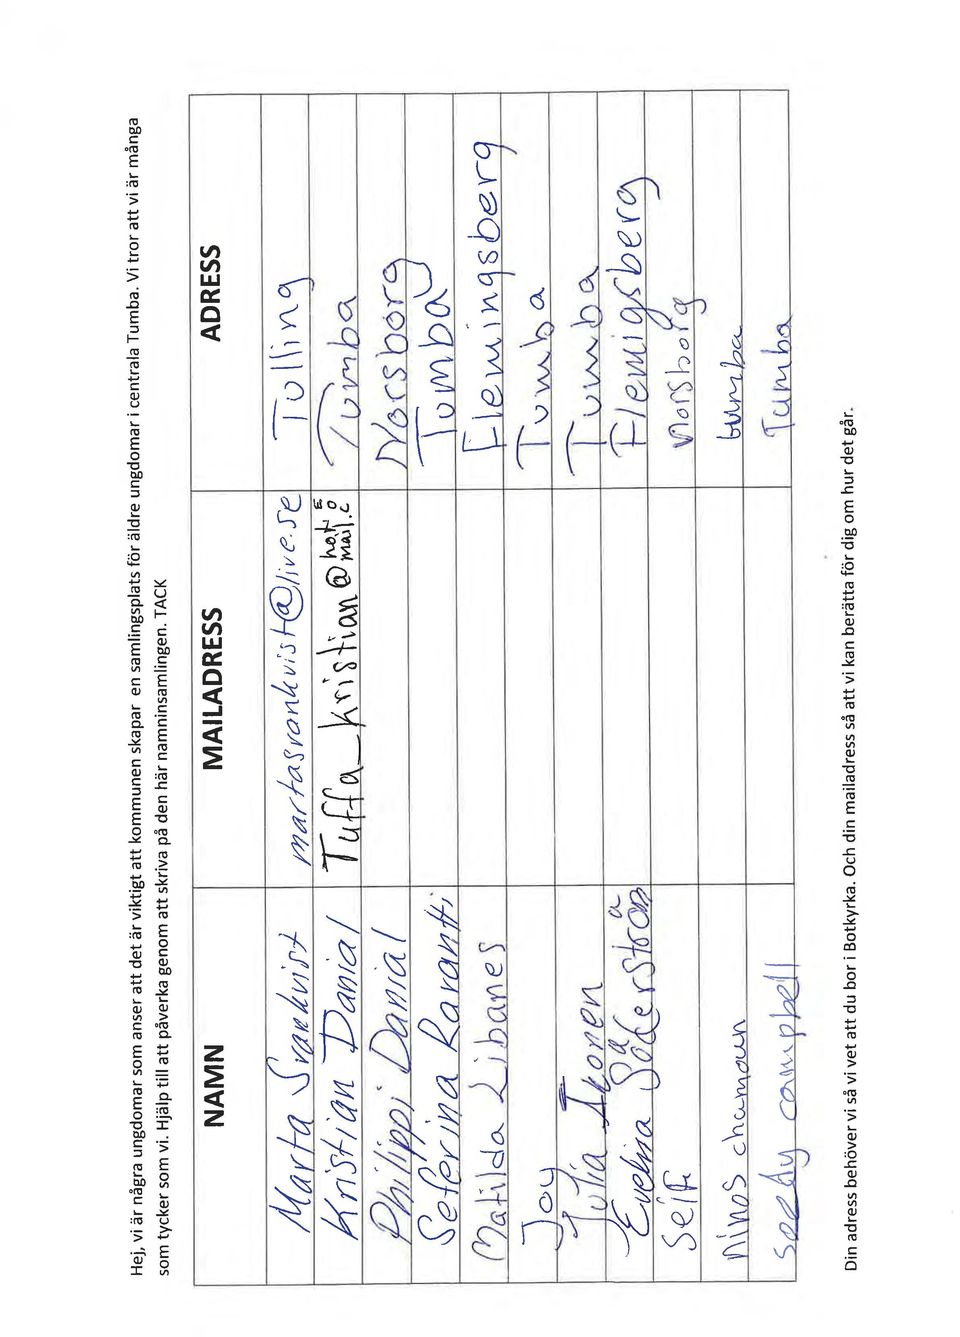 Hej, vi är några ungdomar som anser att det är viktigt att kommunen skapar en samlingsplats för äldre ungdomar i centrala Tumba. Vi tror att vi är många
som tycker som vi. Hjälp till att påverka genom att skriva på den här namninsamlingen. TACK
NAMN MAILADRESS ADRESS
Marta Svankvist martasvankvist@live.se Tulling
Kristian Danial Tuffa_kristian@hotmail.c Tumba
Philippi Danial Norsborg
Seferina Ravantti Tumba
Matilda Libanes Flemingsberg
Joy Tumba
Julia Tumba
Evelina Flemigsberg
Self norsborg
ninos chamoun tumba
Seedy campbell Tumba
Din adress behöver vi så vi vet att du bor i Botkyrka. Och din mailadress så att vi kan berätta för dig om hur det går.